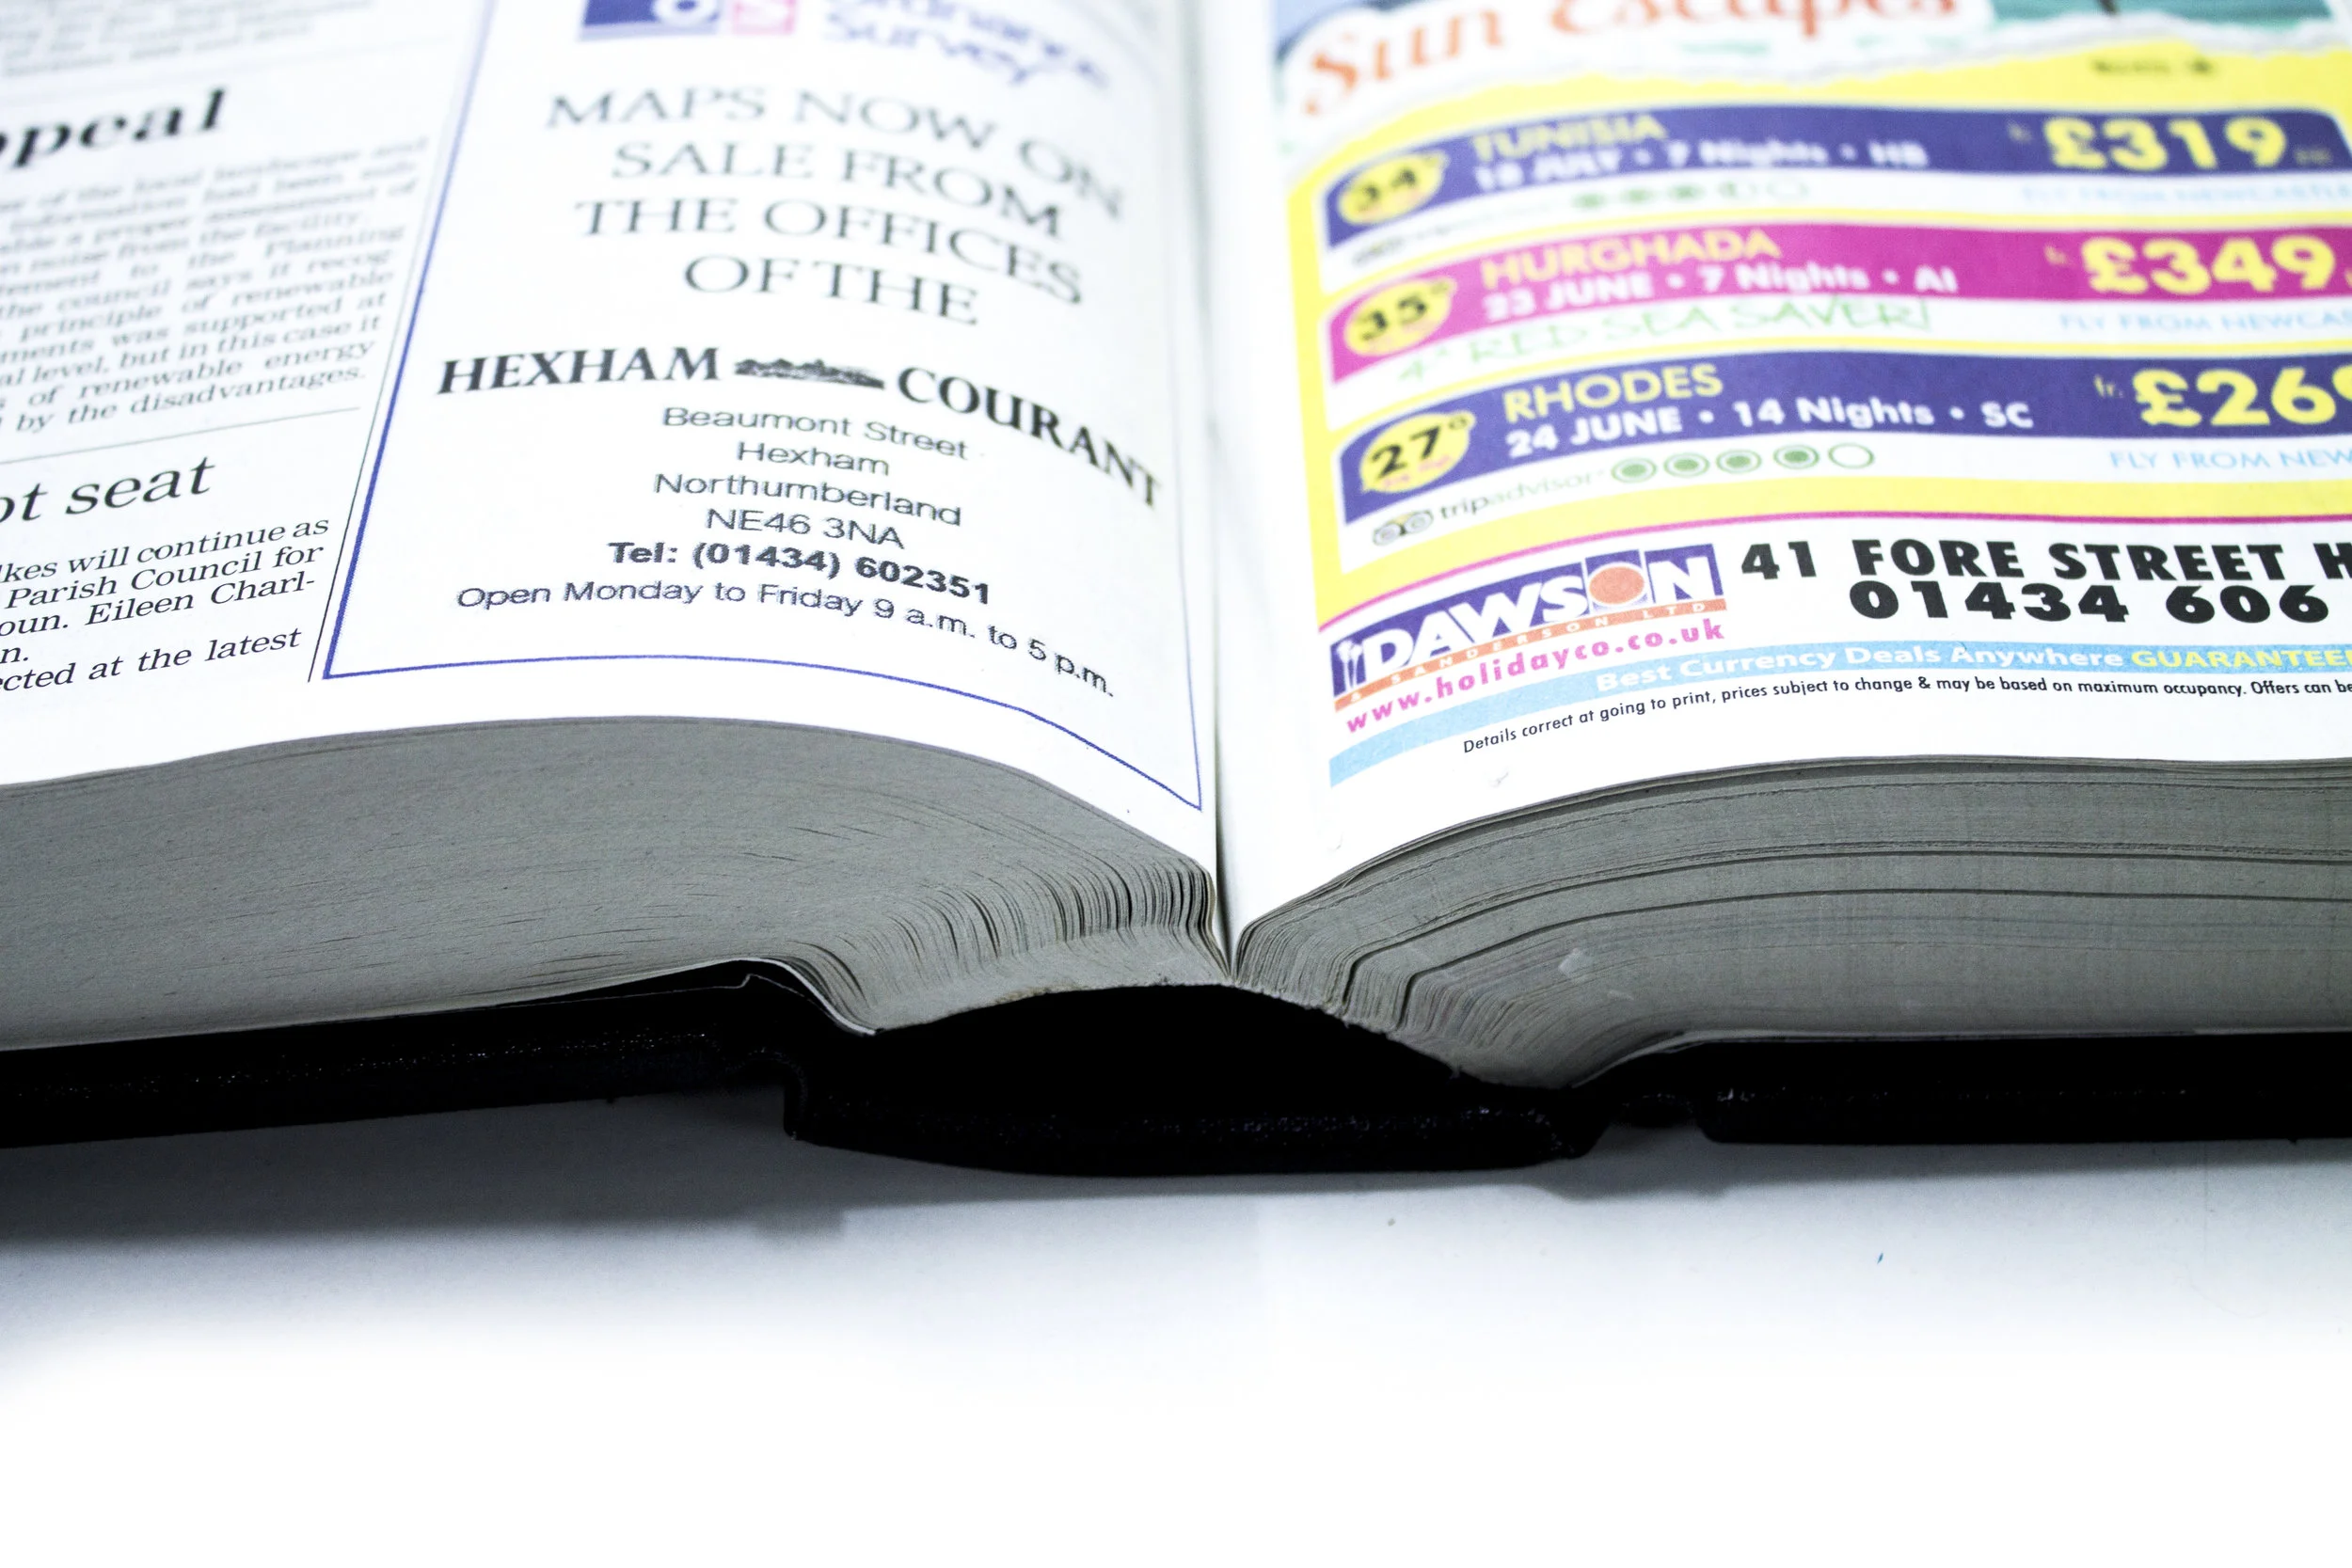 ppeal
of the local landscape and
information had been sub-
able a proper assessment of
n noise from the facility.
ement to the Planning
the council says it recog-
principle of renewable
ments was supported at
al level, but in this case it
s of renewable energy
by the disadvantages.
ot seat
lkes will continue as
Parish Council for
oun. Eileen Charl-
n.
ected at the latest
Ordnance
Survey
MAPS NOW ON
SALE FROM
THE OFFICES
OF THE
HEXHAM COURANT
Beaumont Street
Hexham
Northumberland
NE46 3NA
Tel: (01434) 602351
Open Monday to Friday 9 a.m. to 5 p.m.
Sun Escapes
34°
TUNISIA
£319
JULY • 7 Nights • HB
FLY FROM NEWCASTLE
35°
HURGHADA
£349
23 JUNE • 7 Nights • AI
4* RED SEA SAVER!
FLY FROM NEWCA
27°
RHODES
fr. £26
24 JUNE • 14 Nights • SC
tripadvisor
FLY FROM NEW
DAWSON
& SANDERSON LTD
41 FORE STREET H
01434 606
www.holidayco.co.uk
Best Currency Deals Anywhere GUARANTEE
Details correct at going to print, prices subject to change & may be based on maximum occupancy. Offers can be